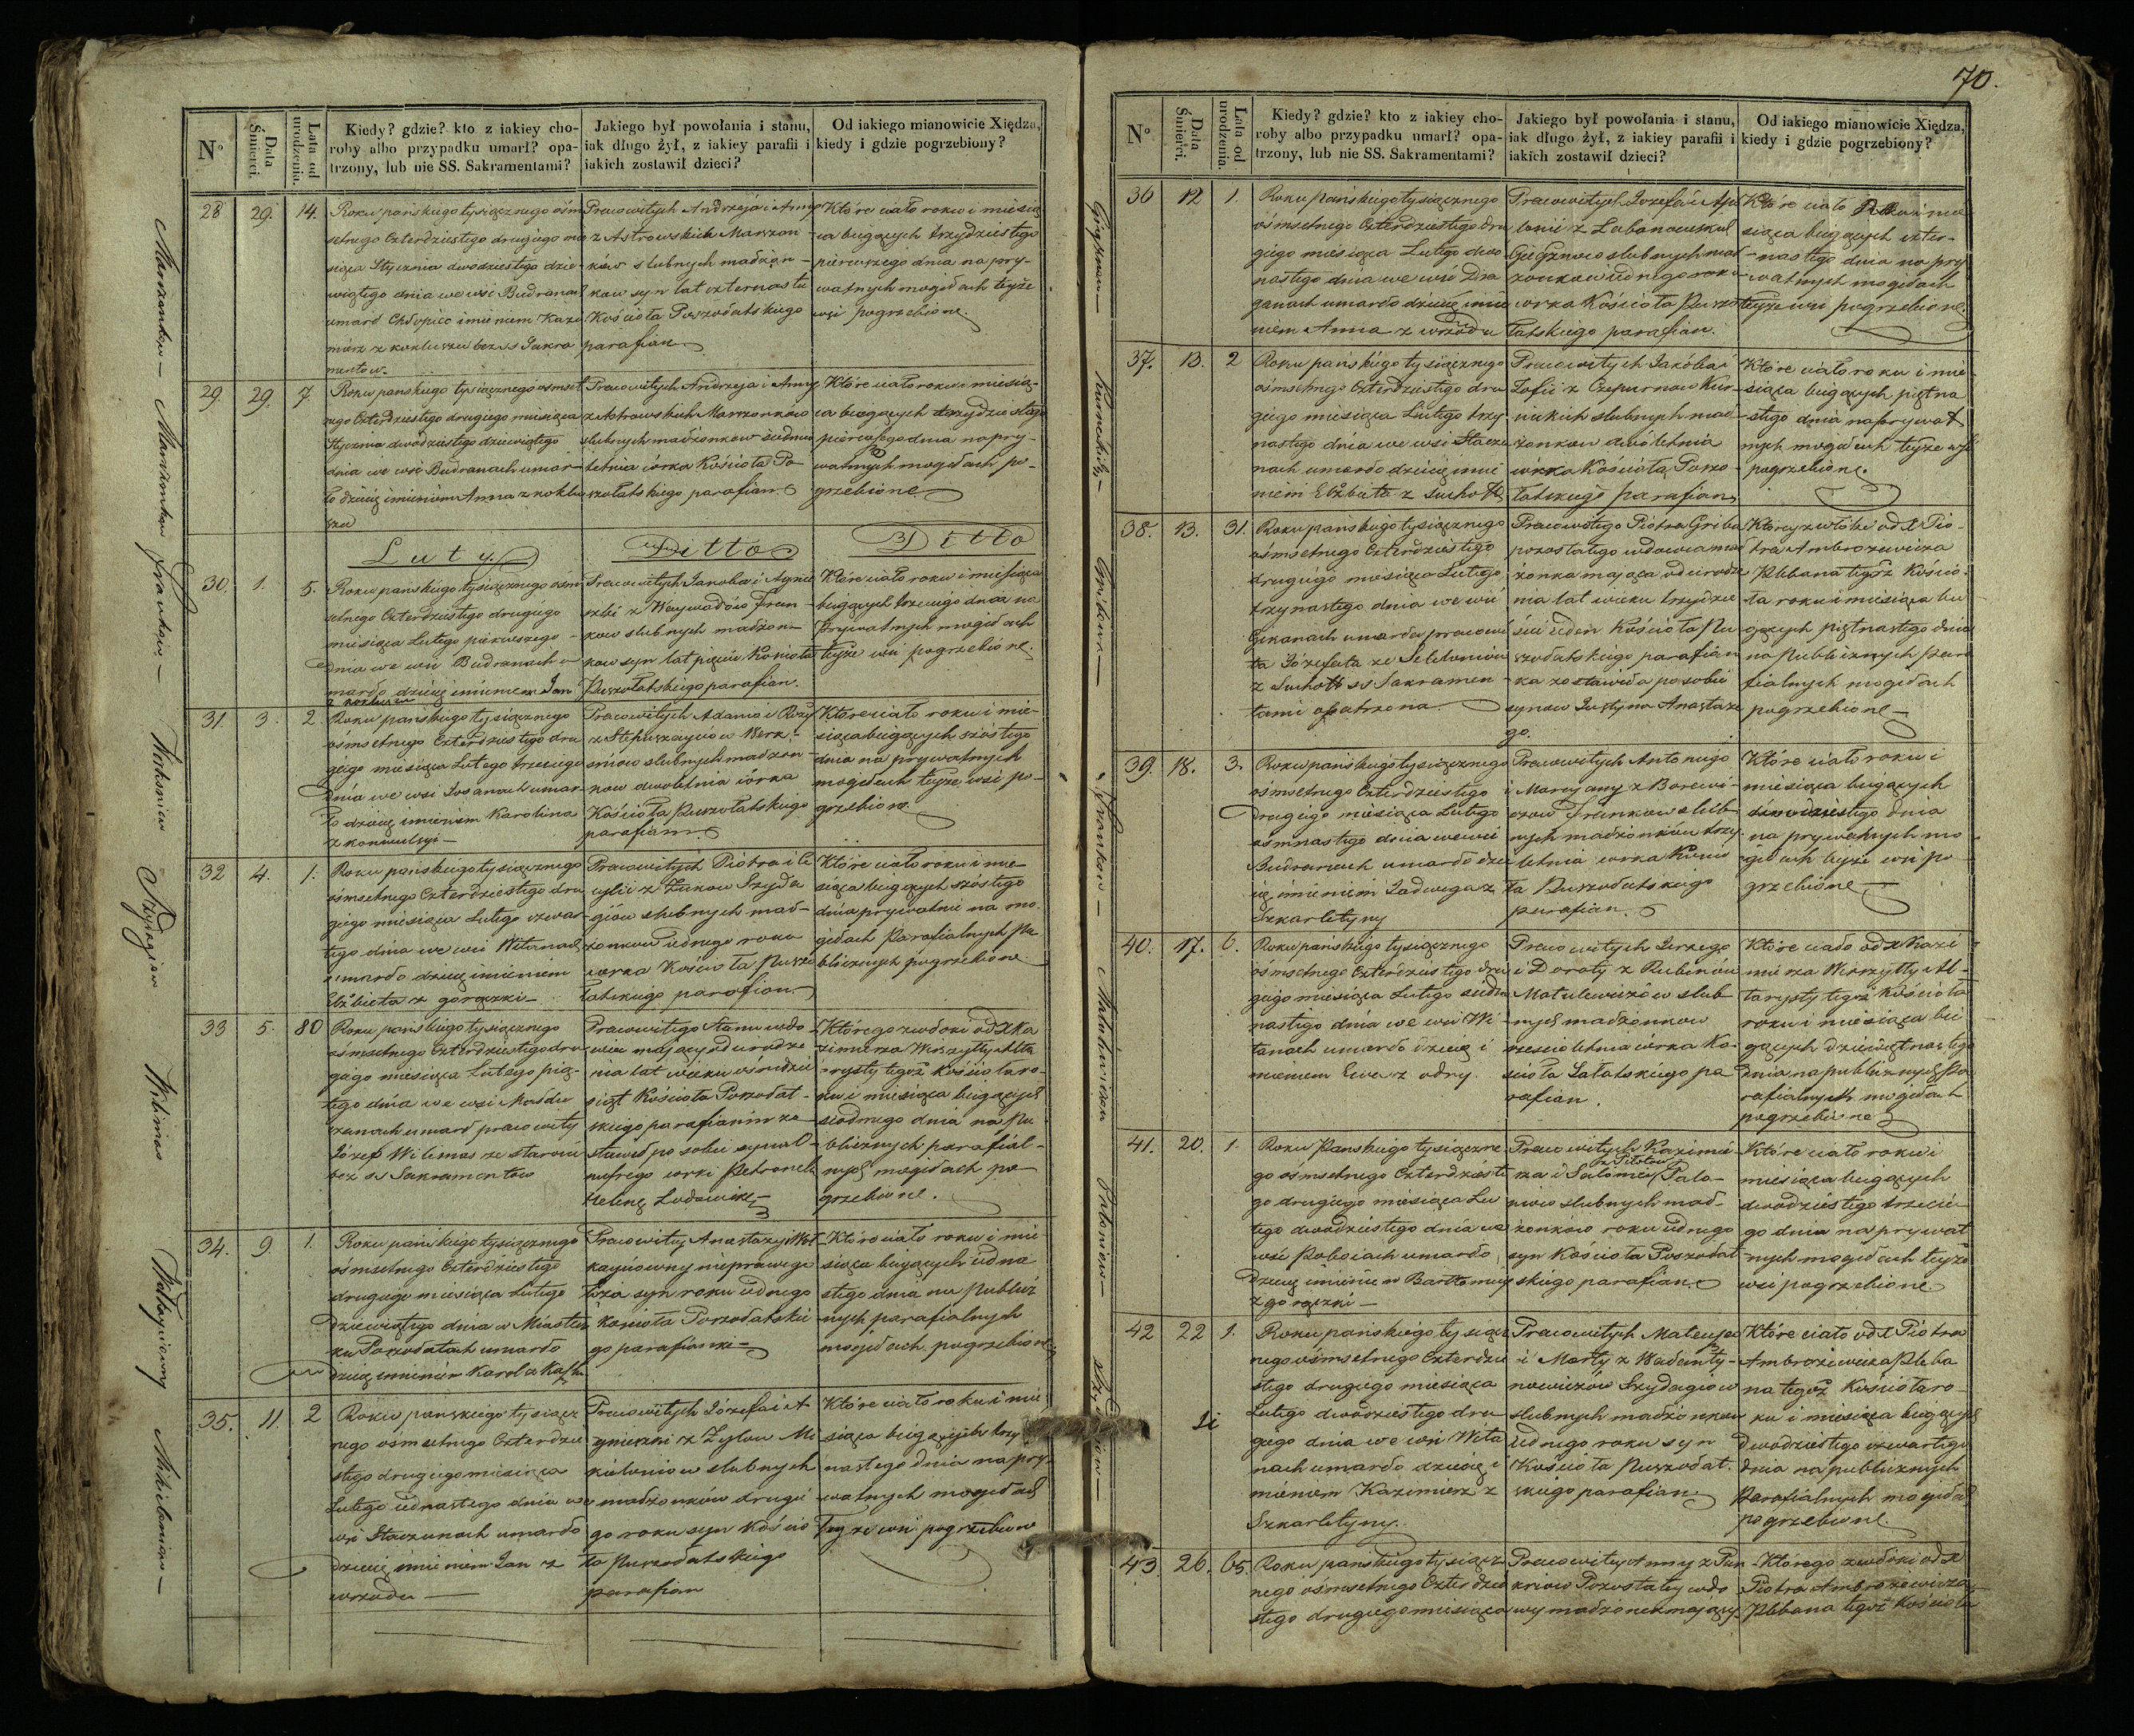 70.
N°
Data Śmierci.
Lata od urodzenia.
Kiedy? gdzie? kto z iakiey cho-
roby albo przypadku umarł? opa-
trzony, lub nie SS. Sakramentami?
Jakiego był powołania i stanu,
iak długo żył, z iakiey parafii i
iakich zostawił dzieci?
Od iakiego mianowicie Xiędza,
kiedy i gdzie pogrzebiony?
28
29.
14.
Roku pańskiego tysiącznego ośm
setnego Czterdziestego drugiego mie
siąca Stycznia dwudziestego dzie-
wiątego dnia we wsi Budranach
umarł Chłopiec imieniem Kazi
mierz z kokluszu bez ss Sakra
mentow.
Pracowitych Andrzeja i Anny
z Astrowskich Marszon
ków slubnych madżon-
kow syn lat czternastu
Kościoła Poszołatskiego
parafian
Które ciało roku i miesią
ca bieżących trzydziestego
pierwszego dnia na pry-
watnych mogiłach teyże
wsi pogrzebione.
29.
29.
7
Roku pańskiego tysiącznego ośmset
nego Czterdziestego drugiego miesiąca
Stycznia dwudziestego dziewiątego
dnia we wsi Budranach umar-
ło dziecię imieniem Anna z koklu
szu
Pracowitych Andrzeja i Anny
z Astrowskich Marszonkow
slubnych madżonkow siedmio
letnia córka Kościoła Po-
szołatskiego parafian
Które ciało roku i miesią-
ca bieżących trzydziestego
pierwszego dnia na pry-
watnych mogiłach po-
grzebione
Luty.
Ditto
Ditto
30.
1.
5.
Roku pańskiego tysiącznego ośm
setnego Czterdziestego drugiego
miesiąca Lutego pierwszego
dnia we wsi Budranach u-
marło dziecię imieniem Jan
z kokluszu
Pracowitych Jakoba i Agnie
szki z Woywodów Fran-
kow slubnych madżon-
kow syn lat pięciu Kościoła
Puszołatskiego parafian.
Które ciało roku i miesiąca
bieżących trzeciego dnia na
prywatnych mogiłach
teyże wsi pogrzebione.
31.
3.
2.
Roku pańskiego tysiącznego
ośmsetnego Czterdziestego dru
giego miesiąca Lutego trzeciego
dnia we wsi Josanach umar-
ło dziecię imieniem Karolina
z konwulsyi
Pracowitych Adama i Rozy
slubnych madżon
kow dwoletnia córka
Kościoła Puszołatskiego
parafian
Które ciało roku i mie-
siąca bieżących szóstego
dnia na prywatnych
mogiłach teyże wsi po-
grzebione
32
4.
1.
Roku pańskiego tysiącznego
ośmsetnego Czterdziestego dru
giego miesiąca Lutego czwar
tego dnia we wsi Witanach
umarło dziecię imieniem
Elżbieta z gorączki
Pracowitych Piotra i Ce
cylii z Żukow Szyda
giów slubnych mad-
żonkow iednego roku
corka Kościoła Puszo
łatskiego parafian
Które ciało roku i mie
siąca bieżących szóstego
dnia prywatnie na mo
giłach Parafialnych Pu
blicznych pogrzebione
33
5.
80
Roku pańskiego tysiącznego
ośmsetnego Czterdziestego dru
giego miesiąca Lutego pią-
tego dnia we wsi
umarł pracowity
Jozef Wilimas ze starości
bez ss Sakramentów
Pracowitego Stanu wdo
wiec mający od urodze
nia lat wieku ośmdzie
siąt Kościoła Poszołat-
skiego parafianin zo
stawił po sobie syna O-
nufrego corki Petronele
Helenę Ludowikę
Którego zwłoki od X Ka
zimierza Wirszyłły Alta
rysty tegoż Kościoła ro-
ku i miesiąca bieżących
siodmego dnia na Pu
blicznych parafial-
nych mogiłach po
grzebione.
34.
9.
1.
Roku pańskiego tysiącznego
ośmsetnego Czterdziestego
drugiego miesiąca Lutego
dziewiątego dnia w Miastecz
ku Poszołatach umarło
dziecię imieniem Karol z Kaszlu
Pracowitey Anastazyi
nieprawego
łoża syn roku iednego
Kościoła Poszołatskie
go parafianki
Które ciało roku i mie
siąca bieżących iedna
stego dnia na Publicz
nych parafialnych
mogiłach pogrzebione
35.
11.
2
Roku pańskiego tysiącz
nego ośmsetnego Czterdzie
stego drugiego miesiąca
Lutego iednastego dnia we
wsi Staczunach umarło
dziecię imieniem Jan z
wrzodu
Pracowitych Józefa i A
gnieszki z Zylow Mi
kielunow slubnych
madżonków drugie
go roku syn Kościo
ła Puszołatskiego
parafian
Które ciało roku i mie
siąca bieżących trzy
nastego dnia na pry
watnych mogiłach
Teyże wsi pogrzebione
N°
Data Śmierci.
Lata od urodzenia.
Kiedy? gdzie? kto z iakiey cho-
roby albo przypadku umarł? opa-
trzony, lub nie SS. Sakramentami?
Jakiego był powołania i stanu,
iak długo żył, z iakiey parafii i
iakich zostawił dzieci?
Od iakiego mianowicie Xiędza,
kiedy i gdzie pogrzebiony?
36
12
1.
Roku pańskiego tysiącznego
ośmsetnego Czterdziestego dru
giego miesiąca Lutego dwu
nastego dnia we wsi Dra
ganach umarło dziecię imie
niem Anna z wrzodu
Pracowitych Jozefa i Apo
lonii z Labanowskich
slubnych mad
żonkow iednego roku
corka Kościoła Puszo
łatskiego parafian.
Które ciało roku i mie
siąca bieżących czter-
nastego dnia na pry
watnych mogiłach
teyże wsi pogrzebione.
37.
13.
2
Roku pańskiego tysiącznego
ośmsetnego Czterdziestego dru
giego miesiąca Lutego trzy-
nastego dnia we wsi Stacza
nach umarło dziecię imie
niem Elżbieta z suchot
Pracowitych Jakóba i
Zofii z Czepurnow Kur
nickich slubnych mad-
żonkow dwoletnia
córka Kościoła Poszo-
łatskiego parafian
Które ciało roku i mie
siąca bieżących piętna
stego dnia na prywat
nych mogiłach teyże wsi
pogrzebione.
38.
13.
31.
Roku pańskiego tysiącznego
ośmsetnego Czterdziestego
drugiego miesiąca Lutego
trzynastego dnia we wsi
umarła pracowi
ta Józefata ze
z Suchot ss Sakramen
tami opatrzona.
Pracowitego Piotra Griba
pozostałego wdowca mał
żonka mająca od urodze
nia lat wieku trzydzie
ści ieden Kościoła Pu
szołatskiego parafian
ka zostawiła po sobie
synow Justyna Anastaze
go.
Którey zwłoki od X Pio-
tra Ambrożewicza
Plebana tegoż Kościo-
ła roku i miesiąca bie
żących piętnastego dnia
na Publicznych para
fialnych mogiłach
pogrzebione
39.
18.
3.
Roku pańskiego tysiącznego
ośmsetnego Czterdziestego
drugiego miesiąca Lutego
ośmnastego dnia we wsi
Budranach umarło dzie
cię imieniem Jadwiga z
Szkarlatyny
Pracowitych Antoniego
i Maryanny z Borewi-
czow Frankow slub-
nych madżonków trzy-
letnia corka Koscio
ła Puszołatskiego
parafian.
Które ciało roku i
miesiąca bieżących
dwudziestego dnia
na prywatnych mo
giłach teyże wsi po
grzebione
40.
17.
6.
Roku pańskiego tysiącznego
ośmsetnego Czterdziestego dru
giego miesiąca Lutego siedm
nastego dnia we wsi Wi
tanach umarło dziecię i
mieniem Ewa z odry.
Pracowitych Jerzego
i Doroty z Rubinów
Matulewiczów slub
nych madżonkow
szescioletnia córka Ko-
scioła Sałatskiego pa
rafian.
Które ciało od X Kazi
mierza Wirszyłły Al-
tarysty tegoż Kościoła
roku i miesiąca bie
żących dziewiętnastego
dnia na publicznych Pa
rafialnych mogiłach
pogrzebione
41.
20.
1.
Roku Pańskiego tysiączne
go ośmsetnego Czterdzieste
go drugiego miesiąca Lu
tego dwudziestego dnia we
wsi Pabociach umarło
dziecię imieniem Bartłomiey
z gorączki
Pracowitych Kazimie
rza i Salomei
slubnych mad-
żonkow roku iednego
syn Kościoła Poszołat
skiego parafian
Które ciało roku i
miesiąca bieżących
dwudziestego trzecie
go dnia na prywat
nych mogiłach teyże
wsi pogrzebione
42
22
1.
Roku pańskiego tysiącz
nego ośmsetnego Czterdzie
stego drugiego miesiąca
Lutego dwudziestego dru
giego dnia we wsi Wita
nach umarło dziecię i
mieniem Kazimierz z
Szkarlatyny.
Pracowitych Mateusza
i Marty z
Szydagiow
slubnych madżonkow
iednego roku syn
Kościoła Puszołat.
skiego parafian
Które ciało od X Piotra
Ambrożewicza Pleba
na tegoż Kościoła ro-
ku i miesiąca bieżących
dwudziestego czwartego
dnia na publicznych
Parafialnych mogiłach
pogrzebione.
43
26.
65.
Roku pańskiego tysiącz
nego ośmsetnego Czterdzie
stego drugiego miesiąca
Pracowitey Anny z
Pozostałey wdo
wy madżonek mający
Którego zwłoki od X
Piotra Ambrożewicza
Plebana tegoż Kościoła